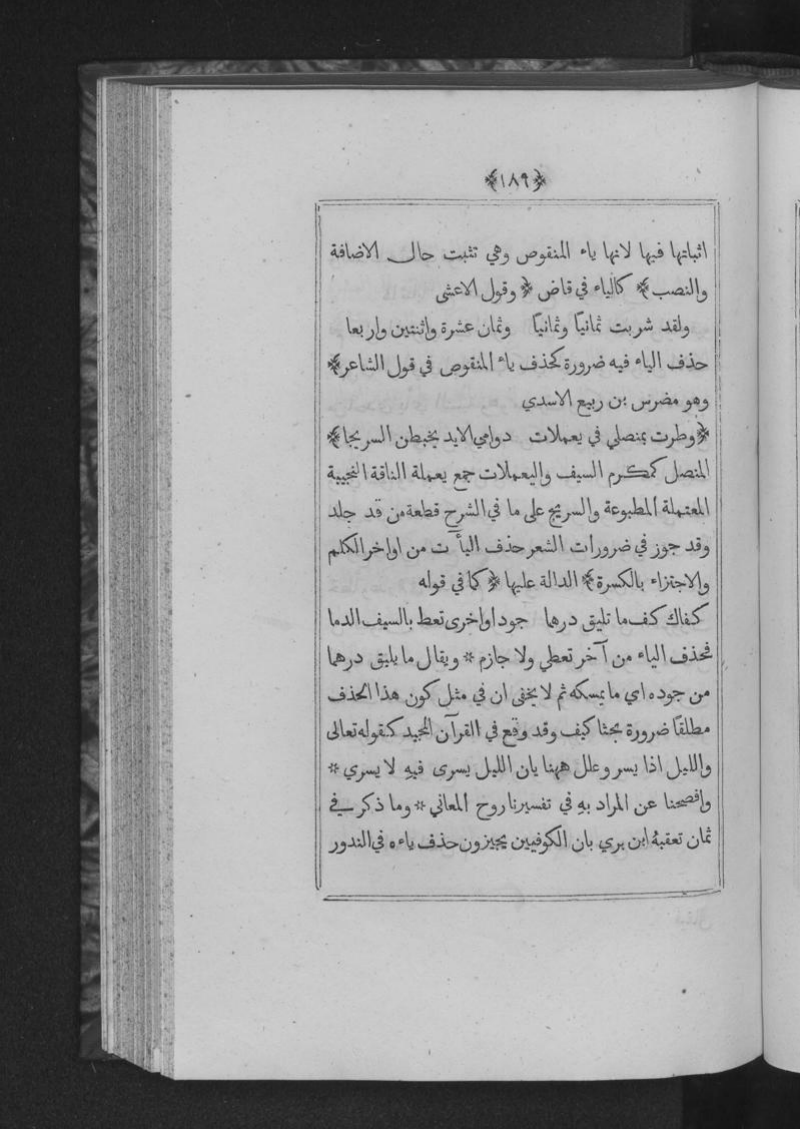 ﴿١٨٩﴾
اثباتها فيها لانها ياء المنقوص وهي تثبت حال الاضافة
والنصب﴾ كالياء في قاض ﴿ وقول الاعشى
ولقد شربت ثمانيًا وثمانيًا وثمان عشرة واثنتين واربعا
حذف الياء فيه ضرورة كحذف ياء المنقوص في قول الشاعر﴾
وهو مضرس بن ربيع الاسدي
﴿وطرت بمنصلي في يعملات دوامي الايد يخبطن السريحا﴾
المنصل كمكرم السيف واليعملات جمع يعملة الناقة النجيبة
المعتملة المطبوعة والسريح على ما في الشرح قطعة من قد جلد
وقد جوز في ضرورات الشعر حذف اليآت من اواخر الكلم
والاجتزاء بالكسرة﴾ الدالة عليها ﴿ كما في قوله
كفاك كف ما تليق درهما جود اواخرى تعط بالسيف الدما
فحذف الياء من آخر تعطي ولا جازم * ويقال ما يليق درهما
من جوده اي ما يمسكه ثم لا يخفى ان في مثل كون هذا الحذف
مطلقًا ضرورة بحثا كيف وقد وقع في القرآن المجيد كقوله تعالى
والليل اذا يسر وعلل ههنا بان الليل يسرى فيه لا يسري *
وافصحنا عن المراد به في تفسيرنا روح المعاني * وما ذكر في
ثمان تعقبهُ ابن بري بان الكوفيين يجيزون حذف ياءه في الندور